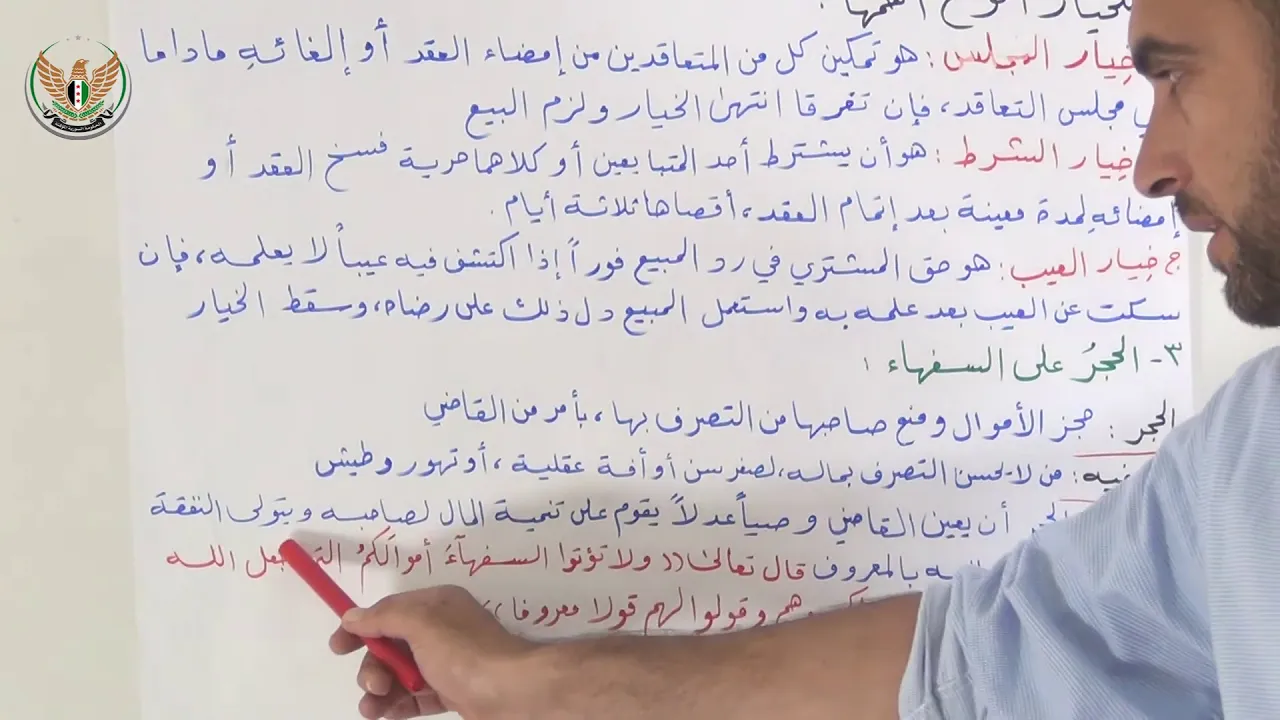 للخيار أنواع أهمها :
خِيار المجلس : هو تمكين كل من المتعاقدين من إمضاء العقد أو إلغائهِ ماداما
مجلس التعاقد، فإن تفرقا انتهىٰ الخيار ولزم البيع
خِيار الشرط : هو أن يشترط أحد المتبايعين أو كلاهما حرية فسخ العقد أو
إمضائهِ لمدة معينة بعد إتمام العقد، أقصاها ثلاثة أيام .
ج خِيار العيب : هو حق المشتري في رد المبيع فوراً إذا اكتشف فيه عيباً لا يعلمه، فإن
سكت عن العيب بعد علمه به واستعمل المبيع دل ذلك على رضاه، وسقط الخيار
٣- الحجرُ على السفهاء :
الحجر : حجز الأموال ومنع صاحبها من التصرف بها، بأمر من القاضي
من لا يحسن التصرف بماله، لصغر سن أو آفة عقلية، أو تهور وطيش
أن يعين القاضي وصياً عدلاً يقوم على تنمية المال لصاحبه ويتولى النفقة
بالمعروف قال تعالىٰ (( ولا تؤتوا السفهآءُ أموالكمُ جعل الله
وقولوا لهم قولا معروفا ))